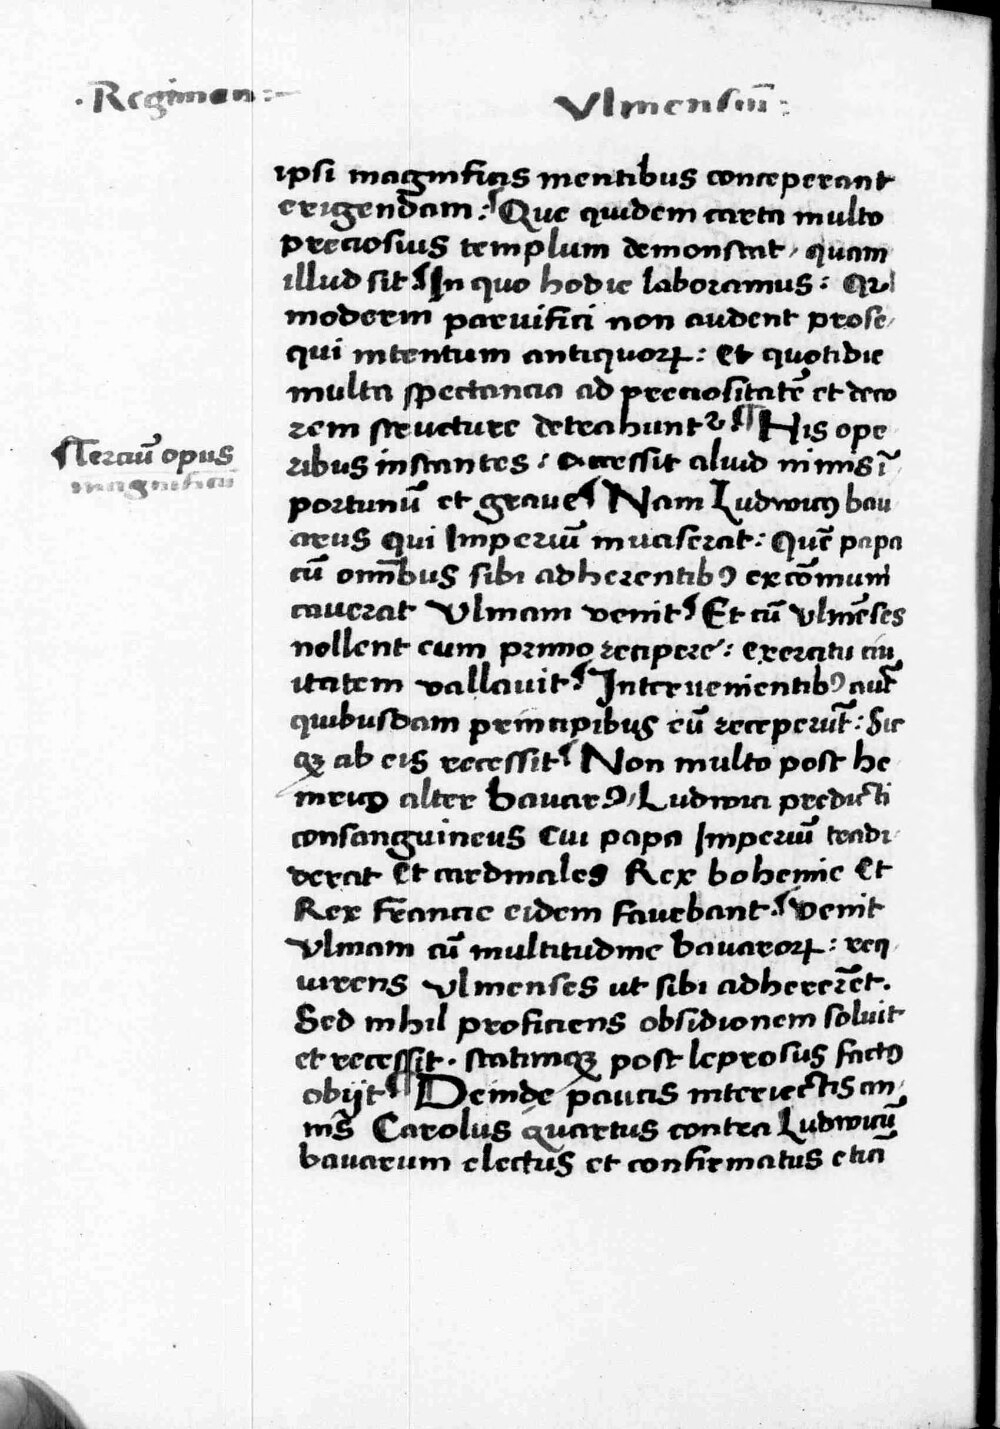 · Regimen :- Vlmensiu̅ :
ipsi magnificis mentibus conceperant
erigendam : Que quidem carta multo
preciosius templum demonstrat, quam
illud sit In quo hodie laboramus : Qꝛ
moderni paruifici non audent prose,
qui intentum antiquorꝝ : Et quotidie
multa spectancia ad preciositate̅ et deco
rem structure detrahunt His ope
ribus instantes : accessit aliud nimis i̅
Terciu̅ opus
magnificu̅
portunu̅ et graue Nam Ludwicꝯ bau
arus qui Imperiu̅ inuaserat : Que̅ papa
cu̅ omnibus sibi adherentibꝯ exco̅muni
cauerat Vlmam venit Et cu̅ vlme̅ses
nollent eum primo recipere : exercitu ciu
itatem vallauit Interuenientibꝯ aut̅
quibusdam principibus eu̅ receperut̅ : Sic
qꝫ ab eis recessit Non multo post he
inricꝯ alter bauarꝯ, Ludwici predicti
consanguineus Cui papa Imperiu̅ tradi
derat Et cardinales Rex bohemie Et
Rex Francie eidem fauebant. venit
Vlmam cu̅ multitudine bauarorꝝ : req
uirens vlmenses ut sibi adhere̅et.
Sed nihil proficiens obsidionem soluit
et recessit. statimqꝫ post leprosus factꝯ
obijt Deinde paucis interiectis an,
nis̅ Carolus quartus contra Ludwicu̅
bauarum electus et confirmatus etia̅